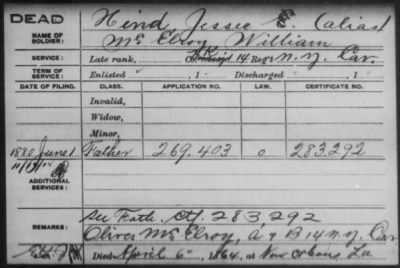 DEAD
Hind Jessie E. (alias)
NAME OF SOLDIER:
Mc Elroy William
TERM OF SERVICE:
Late rank, K 14 Reg't N.Y. Cav.
Enlisted , 1 Discharged , 1
DATE OF FILING. CLASS. APPLICATION NO. LAW. CERTIFICATE NO.
Invalid,
Widow,
Minor,
1880 June 1 Father 269.403 0 283.292
ADDITIONAL SERVICES:
See Fath. Ctf. 283292
REMARKS:
Oliver Mc Elroy, A & B 14 N.Y. Cav
Died April 6", 1864, at New Orleans La